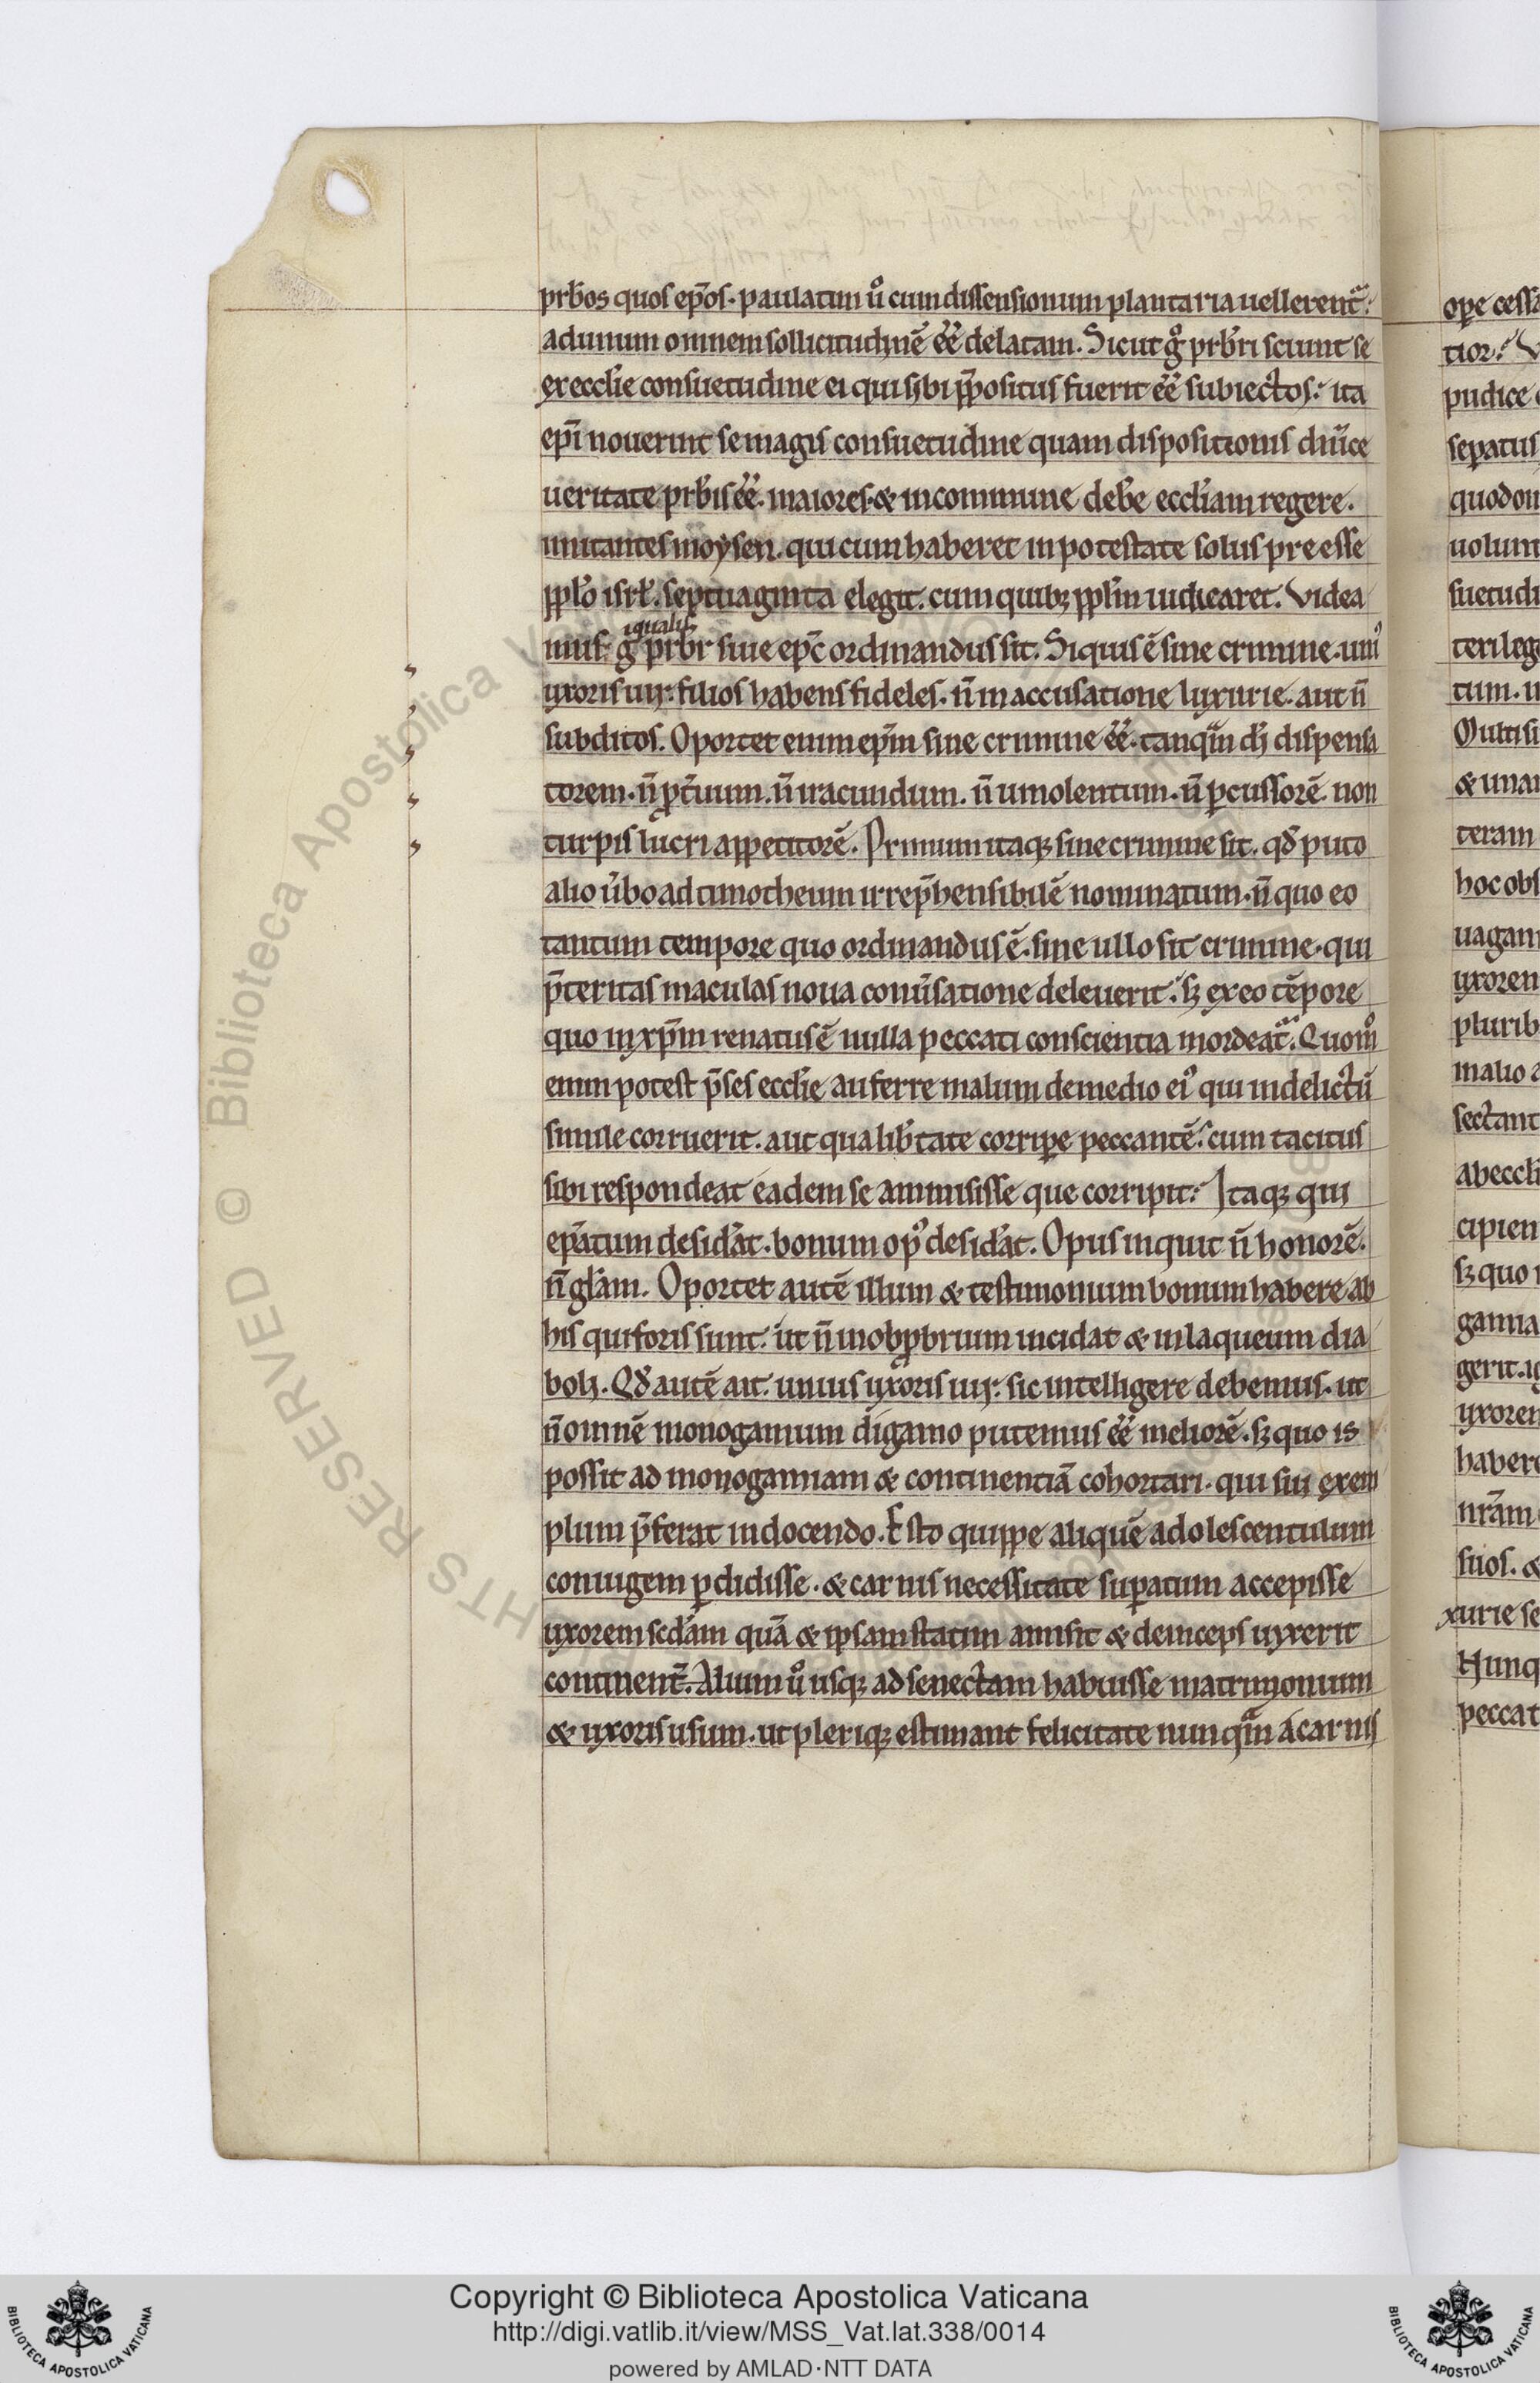 prb̄os quos ep̄os. paulatim ů cum dissensionum plantaria uellerent᷑.
ad unum omnem sollicitudinē ēē delatam. Sicut g̊ prb̄ri sciunt se
ex eccl̄ie consuetudine ei qui sibi p̄positus fuerit ēē subiectos: ita
ep̄i nouerint se magis consuetudine quam dispositionis dn̄ice
ueritate prb̄is ēē. maiores. & incommune deb̄e eccl̄iam regere.
imitantes moysen. qui cum haberet inpotestate solus preesse
pp̄lo isrl̄. septuaginta elegit. cum quibꝫ pp̄lm iudicaret. Videa
iqualis
mus g̊ prb̄r siue ep̄c ordinandus sit. Siquis ē sine crimine. uniꝰ
uxoris uir. filios habens fideles. n̄ in accusatione luxurie. aut n̄
subditos. Oportet enim ep̄m sine crimine ēē. tanqᵃm di dispensa
torem. n̄ ꝓt̄uum. n̄ iracundum. n̄ uinolentum. n̄ ꝑcussorē. non
turpis lucri appetitorē. Primum itaqꝫ sine crimine sit. qd̄ puto
alio u̅bo ad timotheum irrep̄hensibilē nominatum. n̄ quo eo
tantum tempore quo ordinandus ē. sine ullo sit crimine. qui
p̄teritas maculas noua conu̅satione deleuerit. sꝫ ex eo tēpore
quo in xp̄m renatus ē nulla peccati conscientia mordeat᷑. Quom̊
enim potest p̄ses eccl̄ie auferre malum de medio eiꝰ qui in delictū
simile corruerit. aut qua lib̄tate corriꝑe peccantē. cum tacitus
sibi respondeat eadem se ammisisse que corripit. Itaqꝫ qui
ep̄atum desid̄at. bonum opꝰ desid̄at. Opus inquit n̄ honorē.
n̄ gl̄am. Oportet autē illum & testimonium bonum habere ab
his qui foris sunt. ut n̄ in obꝓbrium incidat & in laqueum dia
boli. Qd̄ autē ait. unius uxoris uir. sic intelligere debemus. ut
n̄ omnē monogamum digamo putemus ēē meliorē. sꝫ quo is
possit ad monogamiam & continentiā cohortari. qui sui exem
plum p̄ferat in docendo. Esto quippe aliquē adolescentulum
coniugem ꝑdidisse. & carnis necessitate suꝑatum accepisse
uxorem scd̄am quā & ipsam statim amisit & deinceps uixerit
continent̄. Alium ů usqꝫ ad senectam habuisse matrimonium
& uxoris usum. ut pleriqꝫ estimant felicitate nunqᵃm a carnis
oꝑe cess
tior.
pudice
seꝑatus
quod
uolun
suetudi
terileg
tum. u
Multi si
& una
teram
hoc obs
uagam
uxorem
plurib
malio
sectant
ab eccl
cipien
sꝫ quo
gamia
gerit. ig
uxorem
habere
nr̄am
suos. &
xurie se
Nunq
peccat
Copyright © Biblioteca Apostolica Vaticana
http://digi.vatlib.it/view/MSS_Vat.lat.338/0014
powered by AMLAD·NTT DATA